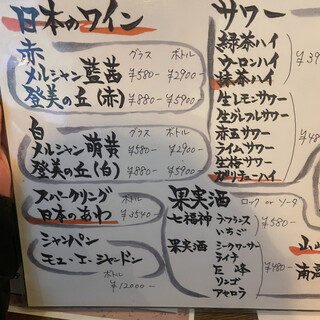 日本のワイン
赤 グラス ボトル
メルシャン 藍茜 ¥580- ¥2900-
登美の丘(赤) ¥880- ¥5900-
白 グラス ボトル
メルシャン 萌黄 ¥580- ¥2900-
登美の丘(白) ¥880- ¥5900-
スパークリング ボトル
日本のあわ ¥3540-
シャンパン
モエ・エ・シャンドン
ボトル
¥12000-
サワー
緑茶ハイ
ウーロンハイ
抹茶ハイ
生レモンサワー
生グレフルサワー
赤玉サワー
ライムサワー
生梅サワー
ガリチューハイ
果実酒 ロック or ソーダ
七福神 ラ・フランス
いちご
¥580-
果実酒 シークワーサー
ライチ
巨峰
リンゴ
アセロラ
¥480-